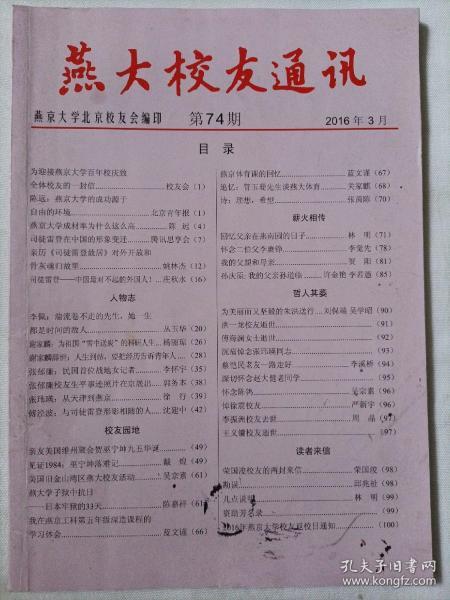 燕大校友通讯
燕京大学北京校友会编印 第74期 2016年3月
目录
为迎接燕京大学百年校庆致
全体校友的一封信 校友会 (1)
陈远:燕京大学的成功源于
自由的环境 北京青年报 (1)
燕京大学成材率为什么这么高 陈远 (4)
司徒雷登在中国的形象变迁 腾讯思享会 (7)
亲历《司徒雷登故居》对外开放和
骨灰魂归故里 姚林杰 (12)
司徒雷登——中国是对不起的外国人! 庄秋水 (16)
人物志
李佩:湍流卷不走的先生,她一生
都是时间的敌人 丛玉华 (20)
谢家麟:为祖国"雪中送炭"的科研人生 杨丽琼 (26)
张郁廉:民国首位战地女记者 李怀宇 (35)
郭务本 (38)
张玮瑛:从天津到燕京 徐行 (39)
傅泾波:与司徒雷登形影相随的人 沈迎中 (42)
校友园地
亲友美国维州聚会贺巫宁坤九五华诞 (49)
见证1984:巫宁坤落难记 戴煌 (49)
美国旧金山湾区燕大校友活动 吴宗素 (61)
燕大学子狱中抗日
——日本牢狱的33天 陈嘉祥 (61)
我在燕京工科第五年级深造课程的
学习体会 蓝文谨 (66)
燕京体育课的回忆 蓝文谨 (67)
追忆:管玉珊先生谈燕大体育 关家麒 (68)
诗:理想,希望 张茵陈 (70)
薪火相传
回忆父亲在燕南园的日子 林明 (71)
怀念二伯父李惠铮 李觉先 (78)
我的父母和母亲 贺阳 (81)
孙庆辰:我的父亲孙道临 许金艳 李若愚 (85)
哲人其萎
为美丽而又坚毅的朱洪送行 刘保端 吴学昭 (90)
洪一龙校友逝世 (91)
傅海澜女士逝世 (91)
沉痛悼念张玮瑛同志 (93)
蔡恺民老友一路走好 李溪桥 (94)
深切怀念赵大健老同学 (95)
怀念陈鸿 吴宗素 (96)
悼徐震校友 严新宇 (96)
李振洲校友去世 周晶 (97)
王义镛校友逝世 (97)
读者来信
荣国浚校友的两封来信 荣国浚 (98)
勘误 邱兆祉 (98)
几点说明 林明 (99)
资助芳名录 (99)
2016年燕京大学校友返校日通知 (100)
孔夫子旧书网